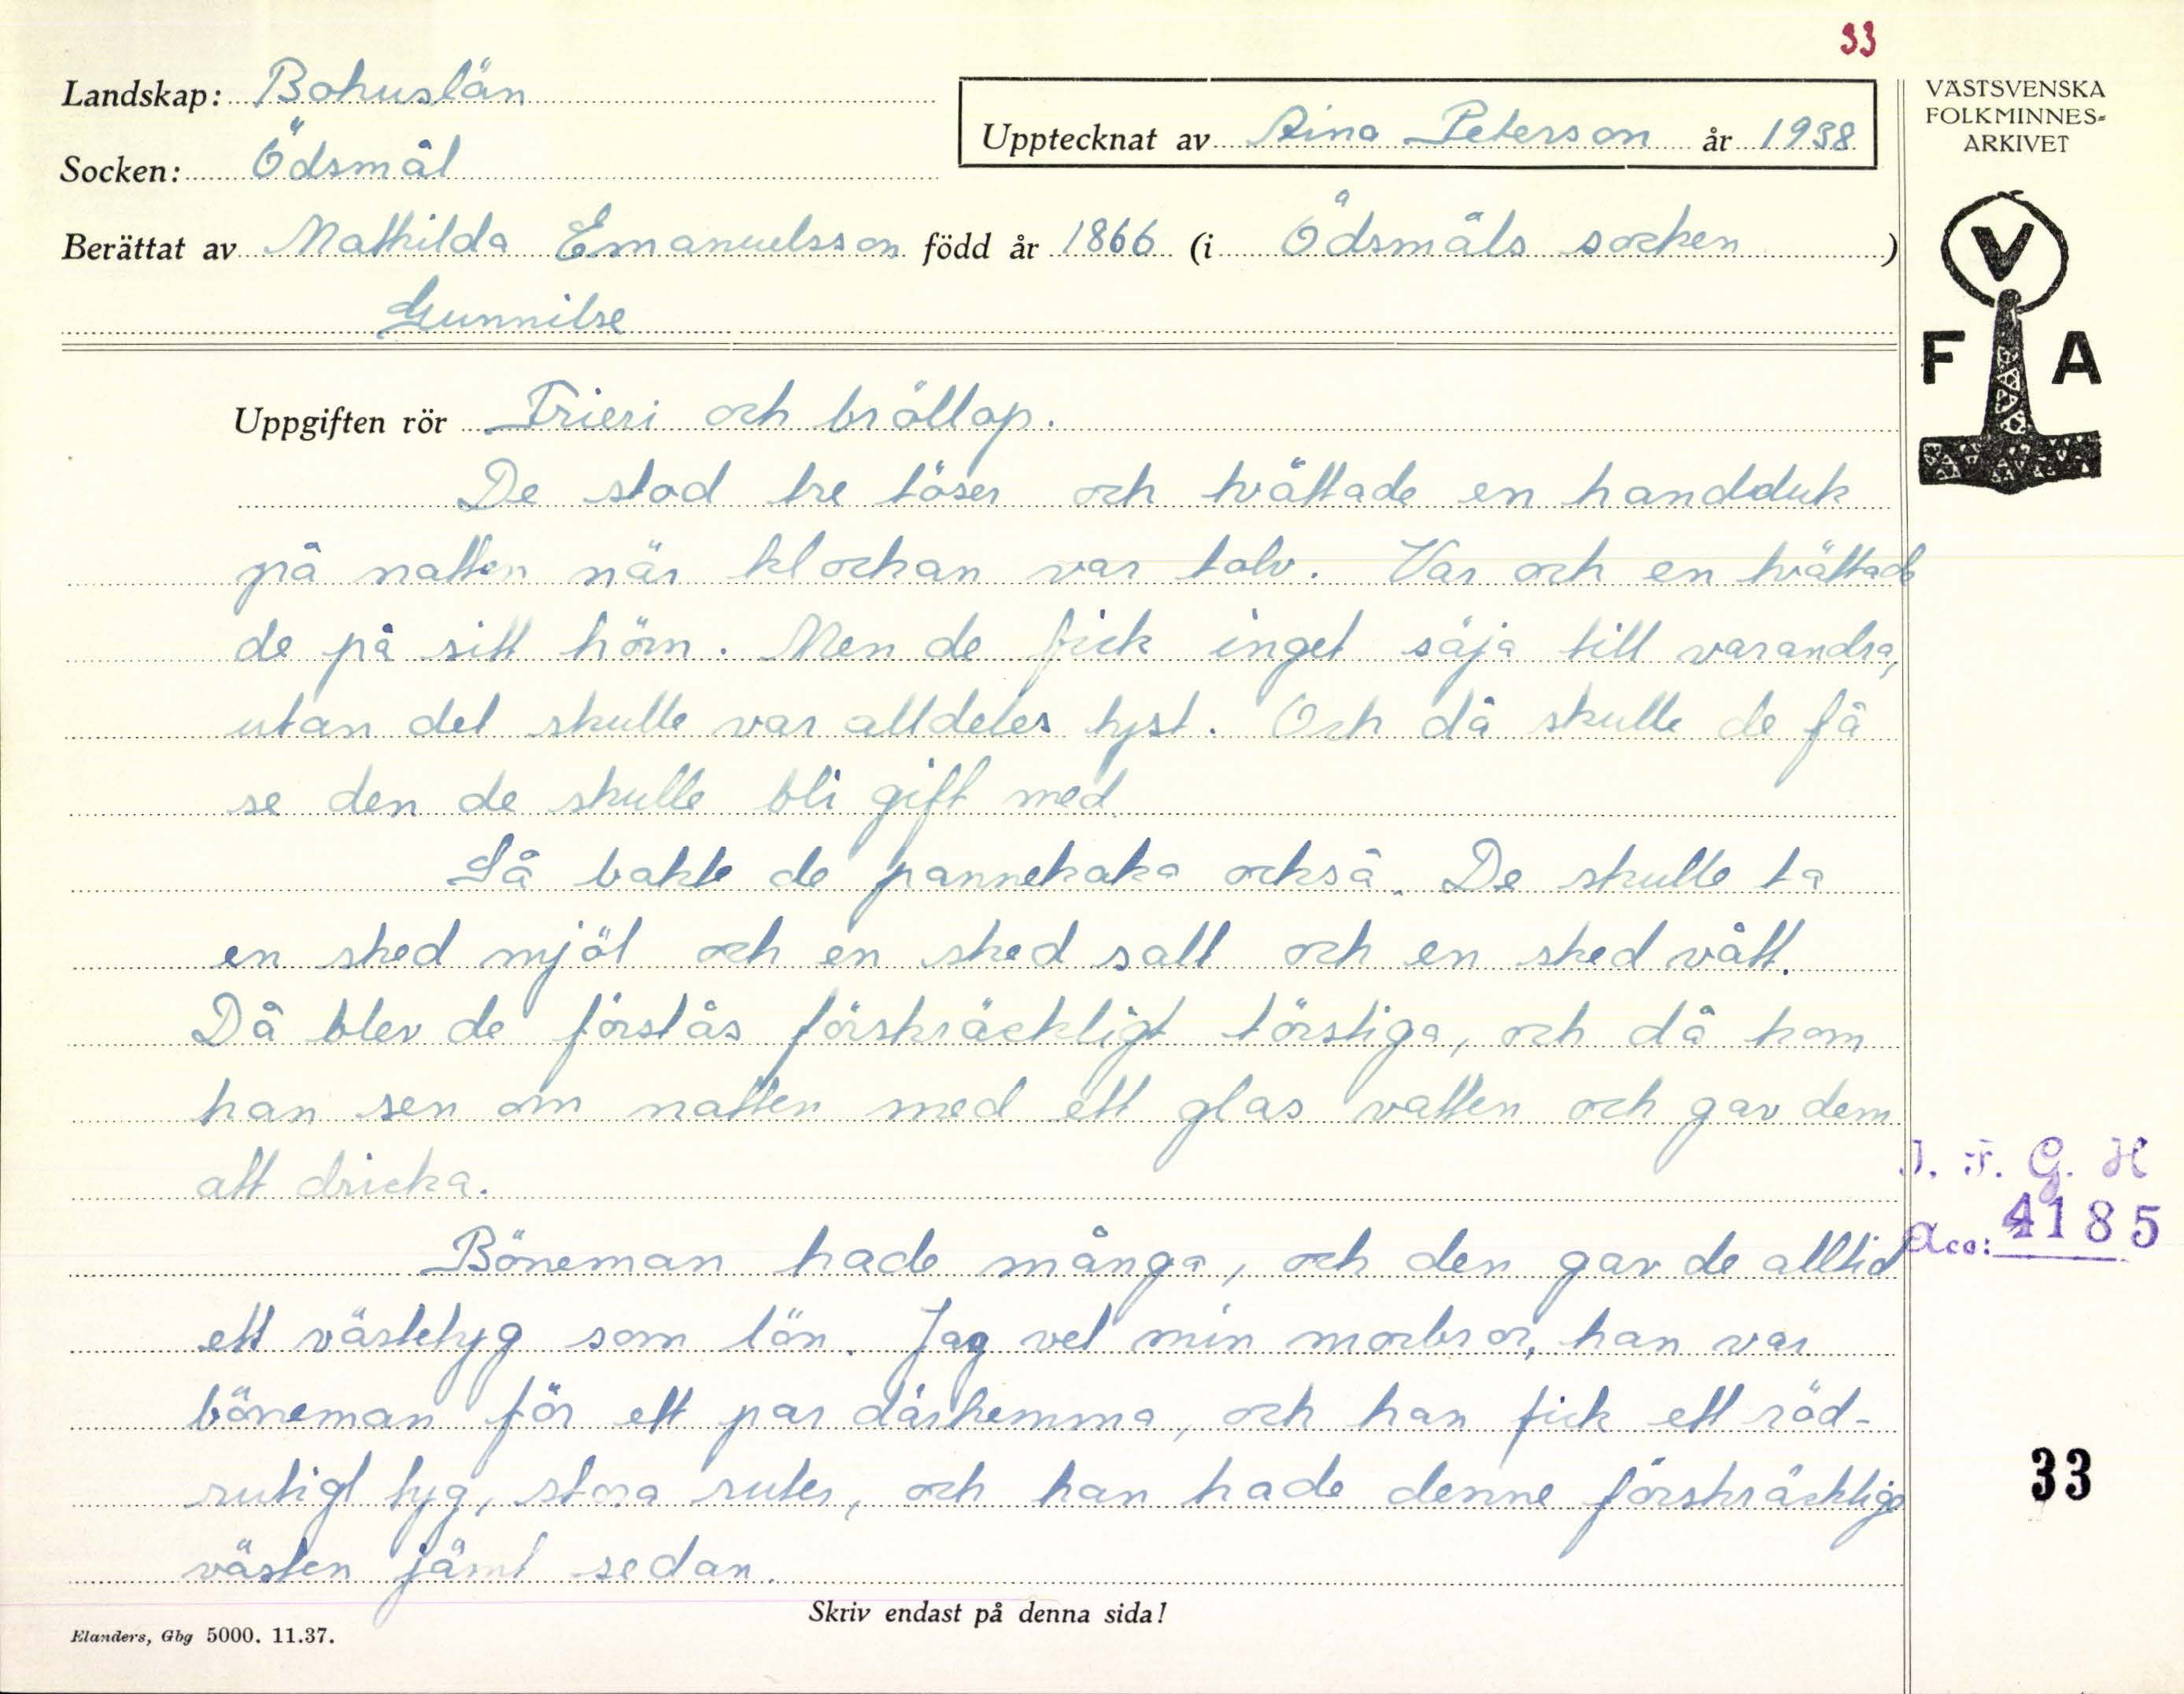 33
Landskap: Bohuslän
Upptecknat av Aina Peterson år 1938
VÄSTSVENSKA
FOLKMINNES-
ARKIVET
Socken: Ödsmål
Berättat av Mathilda Emanuelsson född år 1866 (i Ödsmåls socken)
Gunnilse
V
F A
Uppgiften rör Frieri och bröllop.
De stod tre töser och tvättade en handduk
på natten när klockan var tolv. Var och en tvättade
de på sitt hörn. Men de fick inget säja till varandra,
utan det skulle var alldeles tyst. Och då skulle de få
se den de skulle bli gift med
Så bakte de pannekaka också. De skulle ta
en sked mjöl och en sked salt och en sked vått.
Då blev de förstås förskräckligt törstiga, och då kom
han sen om natten med ett glas vatten och gav dem
att dricka.
J. F. G. H
Acc: 4185
Böneman hade många, och den gav de alltid
ett västetyg som lön. Jag vet min morbror, han var
böneman för ett par därhemma, och han fick ett röd-
rutigt tyg, stora ruter, och han hade denne förskräcklige
västen jämt sedan.
33
Skriv endast på denna sida!
Elanders, Gbg 5000. 11.37.